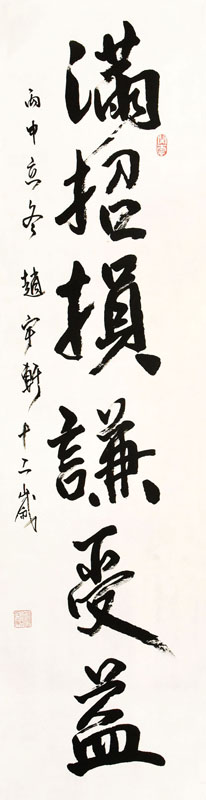 滿招損謙受益
丙申京冬趙宇軒十二歲